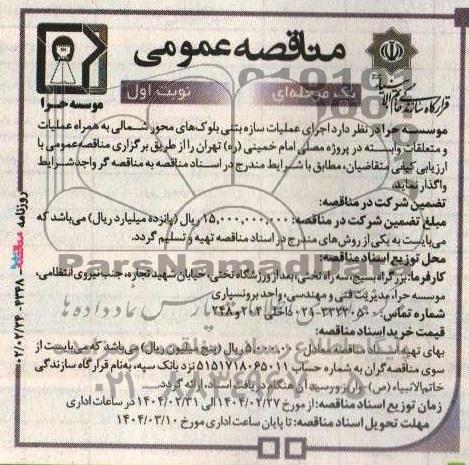 مناقصه عمومی
قرارگاه سازندگی خاتم الانبیاء
موسسه حرا
یک مرحله‌ای
نوبت اول
موسسه حرا در نظر دارد اجرای عملیات سازه بتنی بلوک‌های محور شمالی به همراه عملیات
و متعلقات وابسته در پروژه مصلی امام خمینی (ره) تهران را از طریق برگزاری مناقصه عمومی با
ارزیابی کیفی متقاضیان، مطابق با شرایط مندرج در اسناد مناقصه به مناقصه گر واجد شرایط
واگذار نماید.
تضمین شرکت در مناقصه:
مبلغ تضمین شرکت در مناقصه: ۱۵,۰۰۰,۰۰۰,۰۰۰ ریال (پانزده میلیارد ریال) می‌باشد که
می‌بایست به یکی از روش‌های مندرج در اسناد مناقصه تهیه و تسلیم گردد.
محل توزیع اسناد مناقصه:
کارفرما: بزرگراه بسیج، سه راه تختی، بعد از ورزشگاه تختی، خیابان شهید تجاره، جنب نیروی انتظامی،
موسسه حرا، مدیریت فنی و مهندسی، واحد برونسپاری
شماره تماس: ۰۲۱-۳۳۳۳۰۵۰۰ داخلی ۲۰۳ و ۲۴۸
قیمت خرید اسناد مناقصه:
بهای تهیه اسناد مناقصه معادل ۵,۰۰۰,۰۰۰ ریال (پنج میلیون ریال) می‌باشد که می‌بایست از
سوی مناقصه گران به شماره حساب ۵۱۵۱۷۱۸۰۶۵۰۱۱ نزد بانک سپه، به‌نام قرارگاه سازندگی
خاتم‌الانبیاء (ص) واریز و رسید آن هنگام دریافت اسناد، ارائه گردد.
زمان توزیع اسناد مناقصه: از مورخ ۱۴۰۴/۰۲/۲۷ الی ۱۴۰۴/۰۲/۳۱ در ساعات اداری
مهلت تحویل اسناد مناقصه: تا پایان ساعت اداری مورخ ۱۴۰۴/۰۳/۱۰
روزنامه مناقصه
ParsNamadData
پارس نماد داده ها
پایگاه اطلاع رسانی مناقصه و مزایده